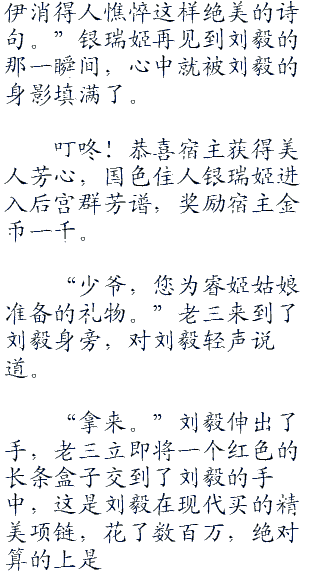 伊消得人憔悴这样绝美的诗
句。”银瑞姬再见到刘毅的
那一瞬间，心中就被刘毅的
身影填满了。
叮咚！恭喜宿主获得美
人芳心，国色佳人银瑞姬进
入后宫群芳谱，奖励宿主金
币一千。
“少爷，您为睿姬姑娘
准备的礼物。”老三来到了
刘毅身旁，对刘毅轻声说
道。
“拿来。”刘毅伸出了
手，老三立即将一个红色的
长条盒子交到了刘毅的手
中，这是刘毅在现代买的精
美项链，花了数百万，绝对
算的上是